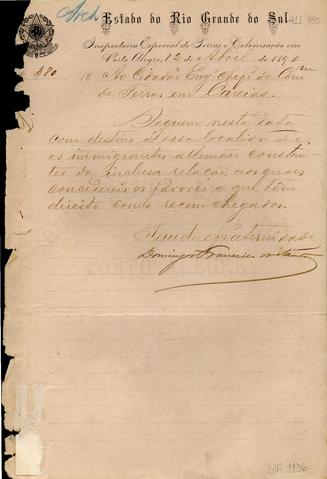 Arch
Estado do Rio Grande do Sul
911 190
Inspectoria Especial de Terras e Colonisação em
Porto Alegre, 12 de Abril de 1890.
N. 380
Ao Cidadão Eng. Chefe da Com
de Terras em Caxias.
Seguem nesta data
com destino a essa localidade
os immigrantes allemães constan
tes da inclusa relação, aos quaes
concedereis os favores a que têm
direito como recem chegados.
Saude e fraternidade
Domingos Francisco dos Santos
PORTO ALEGRE
NR 1196